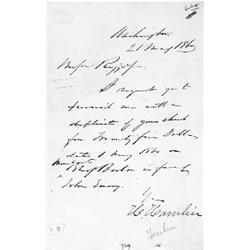 Washington
21 May 1860
Messrs Riggs & Co
I request you to
furnish me with a
duplicate of your check
for Twenty five Dollars
dated 1 May 1860 on
Bk of Boston in favor of
John Emery.
Yrs
H. Hamlin
Hamlin